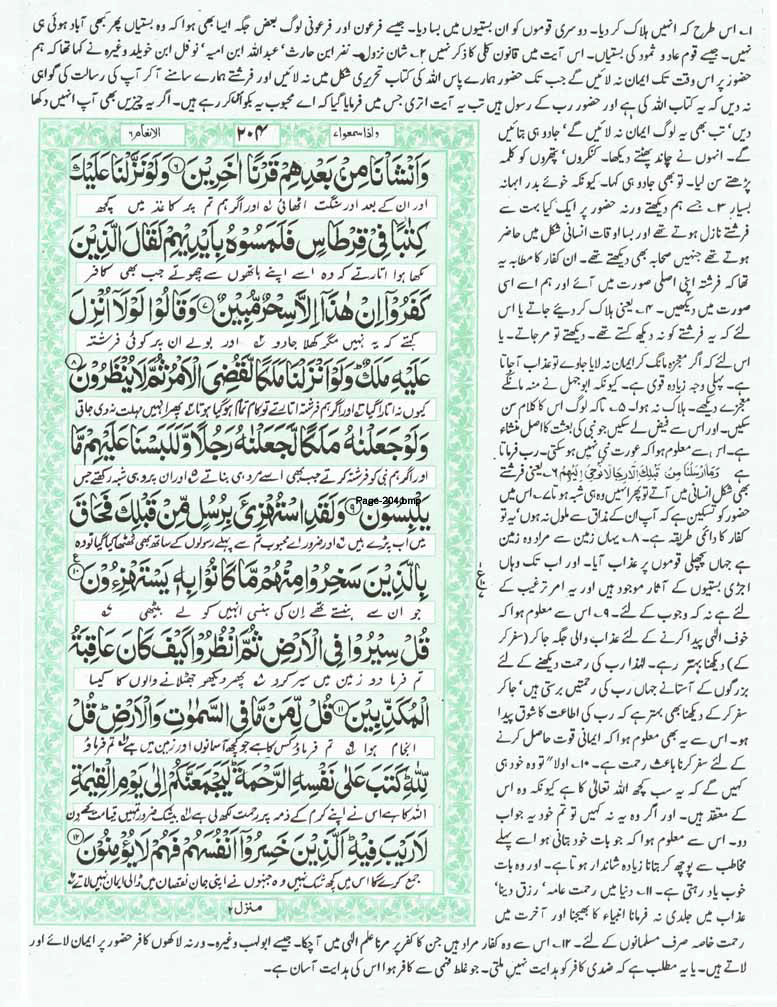 ۱؎ اس طرح کہ انہیں ہلاک کر دیا۔ دوسری قوموں کو ان بستیوں میں بسا دیا۔ جیسے فرعون اور فرعونی لوگ بعض جگہ ایسا بھی ہوا کہ وہ بستیاں پھر کبھی آباد ہوئی ہی
نہیں۔ جیسے قوم عاد و ثمود کی بستیاں۔ اس آیت میں قانون کلی کا ذکر نہیں ۲؎ شان نزول۔ نضر ابن حارث، عبداللہ ابن امیہ، نوفل ابن خویلد وغیرہ نے کہا تھا کہ ہم
حضور پر اس وقت تک ایمان نہ لائیں گے جب تک حضور ہمارے پاس اللہ کی کتاب تحریری شکل میں نہ لائیں اور فرشتے ہمارے سامنے آ کر آپ کی رسالت کی گواہی
نہ دیں کہ یہ کتاب اللہ کی ہے اور حضور رب کے رسول ہیں تب یہ آیت اتری جس میں فرمایا گیا کہ اے محبوب یہ بکواس کر رہے ہیں۔ اگر یہ چیزیں بھی آپ انہیں دکھا
واذا سمعوا ۷
۲۰۴
الانعام ۶
وَاَنْشَاْنَا مِنْۢ بَعْدِهِمْ قَرْنًا اٰخَرِيْنَ ۶ وَلَوْ نَزَّلْنَا عَلَيْكَ
اور ان کے بعد اور سنگت اٹھائی اور اگر ہم تم پر کاغذ میں کچھ
كِتٰبًا فِيْ قِرْطَاسٍ فَلَمَسُوْهُ بِاَيْدِيْهِمْ لَقَالَ الَّذِيْنَ
لکھا ہوا اتارتے کہ وہ اسے اپنے ہاتھوں سے چھوتے جب بھی کافر
كَفَرُوْٓا اِنْ هٰذَآ اِلَّا سِحْرٌ مُّبِيْنٌ ۷ وَقَالُوْا لَوْلَآ اُنْزِلَ
کہتے کہ یہ نہیں مگر کھلا جادو اور بولے ان پر کوئی فرشتہ
عَلَيْهِ مَلَكٌ ۭ وَلَوْ اَنْزَلْنَا مَلَكًا لَّقُضِيَ الْاَمْرُ ثُمَّ لَا يُنْظَرُوْنَ ۸
کیوں نہ اتارا گیا اور اگر ہم فرشتہ اتارتے تو کام تمام ہو گیا ہوتا پھر انہیں مہلت نہ دی جاتی
وَلَوْ جَعَلْنٰهُ مَلَكًا لَّجَعَلْنٰهُ رَجُلًا وَّلَلَبَسْنَا عَلَيْهِمْ مَّا
اور اگر ہم نبی کو فرشتہ کرتے جب بھی اسے مرد ہی بناتے اور ان پر وہی شبہ رکھتے جس
يَلْبِسُوْنَ ۹ وَلَقَدِ اسْتُهْزِئَ بِرُسُلٍ مِّنْ قَبْلِكَ فَحَاقَ
Page-204.bmp
میں اب پڑے ہیں اور ضرور اے محبوب تم سے پہلے رسولوں کے ساتھ بھی ٹھٹھا کیا گیا تو وہ
بِالَّذِيْنَ سَخِرُوْا مِنْهُمْ مَّا كَانُوْا بِهٖ يَسْتَهْزِءُوْنَ ۱۰
جو ان سے ہنستے تھے ان کی ہنسی انہیں کو لے بیٹھی
قُلْ سِيْرُوْا فِي الْاَرْضِ ثُمَّ انْظُرُوْا كَيْفَ كَانَ عَاقِبَةُ
تم فرما دو زمین میں سیر کرو پھر دیکھو جھٹلانے والوں کا کیسا
الْمُكَذِّبِيْنَ ۱۱ قُلْ لِّمَنْ مَّا فِي السَّمٰوٰتِ وَالْاَرْضِ ۭ قُلْ
انجام ہوا تم فرماؤ کس کا ہے جو کچھ آسمانوں اور زمین میں ہے تم فرماؤ
لِّلّٰهِ ۭ كَتَبَ عَلٰى نَفْسِهِ الرَّحْمَةَ ۭ لَيَجْمَعَنَّكُمْ اِلٰى يَوْمِ الْقِيٰمَةِ
اللہ کا ہے اس نے اپنے کرم کے ذمہ پر رحمت لکھ لی ہے بیشک ضرور تمہیں قیامت کے دن
لَا رَيْبَ فِيْهِ ۭ اَلَّذِيْنَ خَسِرُوْٓا اَنْفُسَهُمْ فَهُمْ لَا يُؤْمِنُوْنَ ۱۲
جمع کرے گا اس میں کچھ شک نہیں وہ جنہوں نے اپنی جان نقصان میں ڈالی ایمان نہیں لاتے
منزل ۲
دیں، تب بھی یہ لوگ ایمان نہ لائیں گے، جادو ہی بتائیں
گے۔ انہوں نے چاند پھٹتے دیکھا۔ کنکروں، پتھروں کو کلمہ
پڑھتے سن لیا۔ تو بھی جادو ہی کہا۔ کیونکہ خوئے بدرا بہانہ
بسیار ۳؎ جسے ہم دیکھتے ورنہ حضور پر ایک کیا بہت سے
فرشتے نازل ہوتے تھے اور بسا اوقات انسانی شکل میں حاضر
ہوتے تھے جنہیں صحابہ بھی دیکھتے تھے۔ ان کفار کا مطالبہ یہ
تھا کہ فرشتہ اپنی اصلی صورت میں آئے اور ہم اسے اسی
صورت میں دیکھیں۔ ۴؎ یعنی ہلاک کر دیئے جاتے یا اس
لئے کہ یہ فرشتے کو نہ دیکھ سکتے تھے۔ دیکھتے تو مر جاتے۔ یا
اس لئے کہ اگر معجزہ مانگ کر ایمان نہ لایا جاوے تو عذاب آ جاتا
ہے۔ پہلی وجہ زیادہ قوی ہے۔ کیونکہ ابوجہل نے منہ مانگے
معجزے دیکھے۔ ہلاک نہ ہوا۔ ۵؎ تاکہ لوگ اس کا کلام سن
سکیں۔ اور اس سے فیض لے سکیں جو نبی کی بعثت کا اصل منشاء
ہے۔ اس سے معلوم ہوا کہ عورت نبی نہیں ہو سکتی۔ رب فرماتا
ہے وَمَا اَرْسَلْنَا مِنْ قَبْلِكَ اِلَّا رِجَالًا نُّوْحِيْ اِلَيْهِمْ ۶؎ یعنی فرشتے
بھی شکل انسانی میں آتے تو پھر انہیں وہ ہی شبہ ہوتا ۷؎ اس میں
حضور کو تسکین ہے کہ آپ ان کے مذاق سے ملول نہ ہوں، یہ تو
کفار کا دائمی طریقہ ہے۔ ۸؎ یہاں زمین سے مراد وہ زمین
ہے جہاں پچھلی قوموں پر عذاب آیا۔ اور اب تک وہاں
اجڑی بستیوں کے آثار موجود ہیں اور یہ امر ترغیب کے
لئے ہے نہ کہ وجوب کے لئے۔ ۹؎ اس سے معلوم ہوا کہ
خوف الٰہی پیدا کرنے کے لئے عذاب والی جگہ جا کر (سفر کر
کے) دیکھنا بہتر رہے۔ لہٰذا رب کی رحمت دیکھنے کے لئے
بزرگوں کے آستانے جہاں رب کی رحمتیں برستی ہیں، جا کر
سفر کر کے دیکھنا بھی بہتر ہے کہ رب کی اطاعت کا شوق پیدا
ہو۔ اس سے یہ بھی معلوم ہوا کہ ایمانی قوت حاصل کرنے
کے لئے سفر کرنا باعث رحمت ہے۔ ۱۰؎ اولاً تو وہ خود ہی
کہیں گے کہ یہ سب کچھ اللہ تعالیٰ کا ہے کیونکہ وہ اس
کے معتقد ہیں۔ اور اگر وہ یہ نہ کہیں تو تم خود یہ جواب
دو۔ اس سے معلوم ہوا کہ جو بات خود بتانی ہو اسے پہلے
مخاطب سے پوچھ کر بتانا زیادہ شاندار ہوتا ہے۔ اور وہ بات
خوب یاد رہتی ہے۔ ۱۱؎ دنیا میں رحمت عامہ، رزق دینا،
عذاب میں جلدی نہ فرمانا انبیاء کا بھیجنا اور آخرت میں
رحمت خاصہ صرف مسلمانوں کے لئے۔ ۱۲؎ اس سے وہ کفار مراد ہیں جن کا کفر پر مرنا علم الٰہی میں آ چکا۔ جیسے ابولہب وغیرہ۔ ورنہ لاکھوں کافر حضور پر ایمان لائے اور
لاتے ہیں۔ یا یہ مطلب ہے کہ ضدی کافر کو ہدایت نہیں ملتی۔ جو غلط فہمی سے کافر ہوا اس کی ہدایت آسان ہے۔